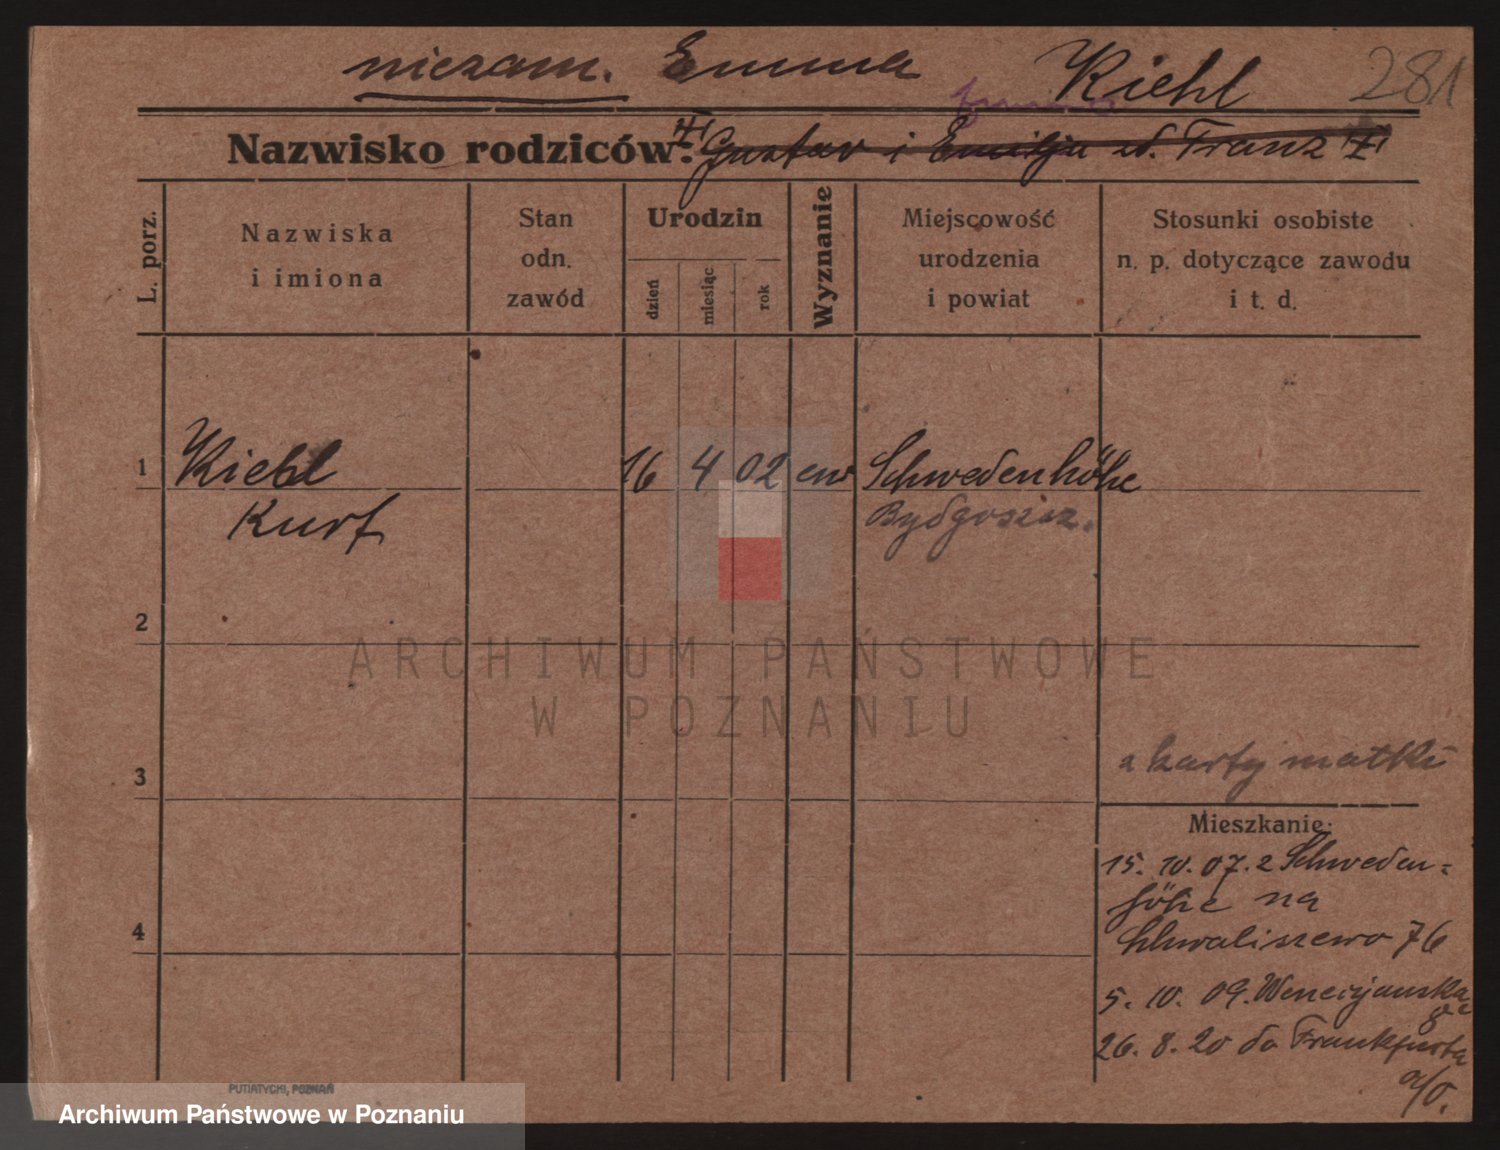 niezam. Emma Kiehl 281
Nazwisko rodziców: Gustav i Emilja zd. Franz
L. porz.
Nazwiska
i imiona
Stan
odn.
zawód
Urodzin
dzień
miesiąc
rok
Wyznanie
Miejscowość
urodzenia
i powiat
Stosunki osobiste
n. p. dotyczące zawodu
i t. d.
1 Kiehl 16 4 02 ew Schwedenhöhe
Kurt Bydgoszcz.
2
ARCHIWUM PAŃSTWOWE
W POZNANIU
z karty matki
3
Mieszkanie:
15. 10. 07. z Schweden-
höhe na
Chwaliszewo 76
4
5. 10. 09. Wenecjańska
8
26. 8. 20 do Frankfurta
a/O.
PUTIATYCKI, POZNAŃ
Archiwum Państwowe w Poznaniu